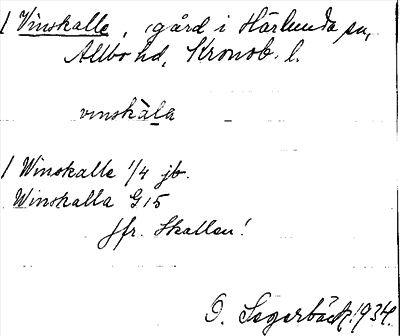 / Vinskalle, gård i Härlunda sn,
Allbo hd, Kronob. l.
vinskàla
/ Winskalle 1/4 jb.
Winskalla G 15
Jfr. Skallen!
O. Segerbäck. 1934.